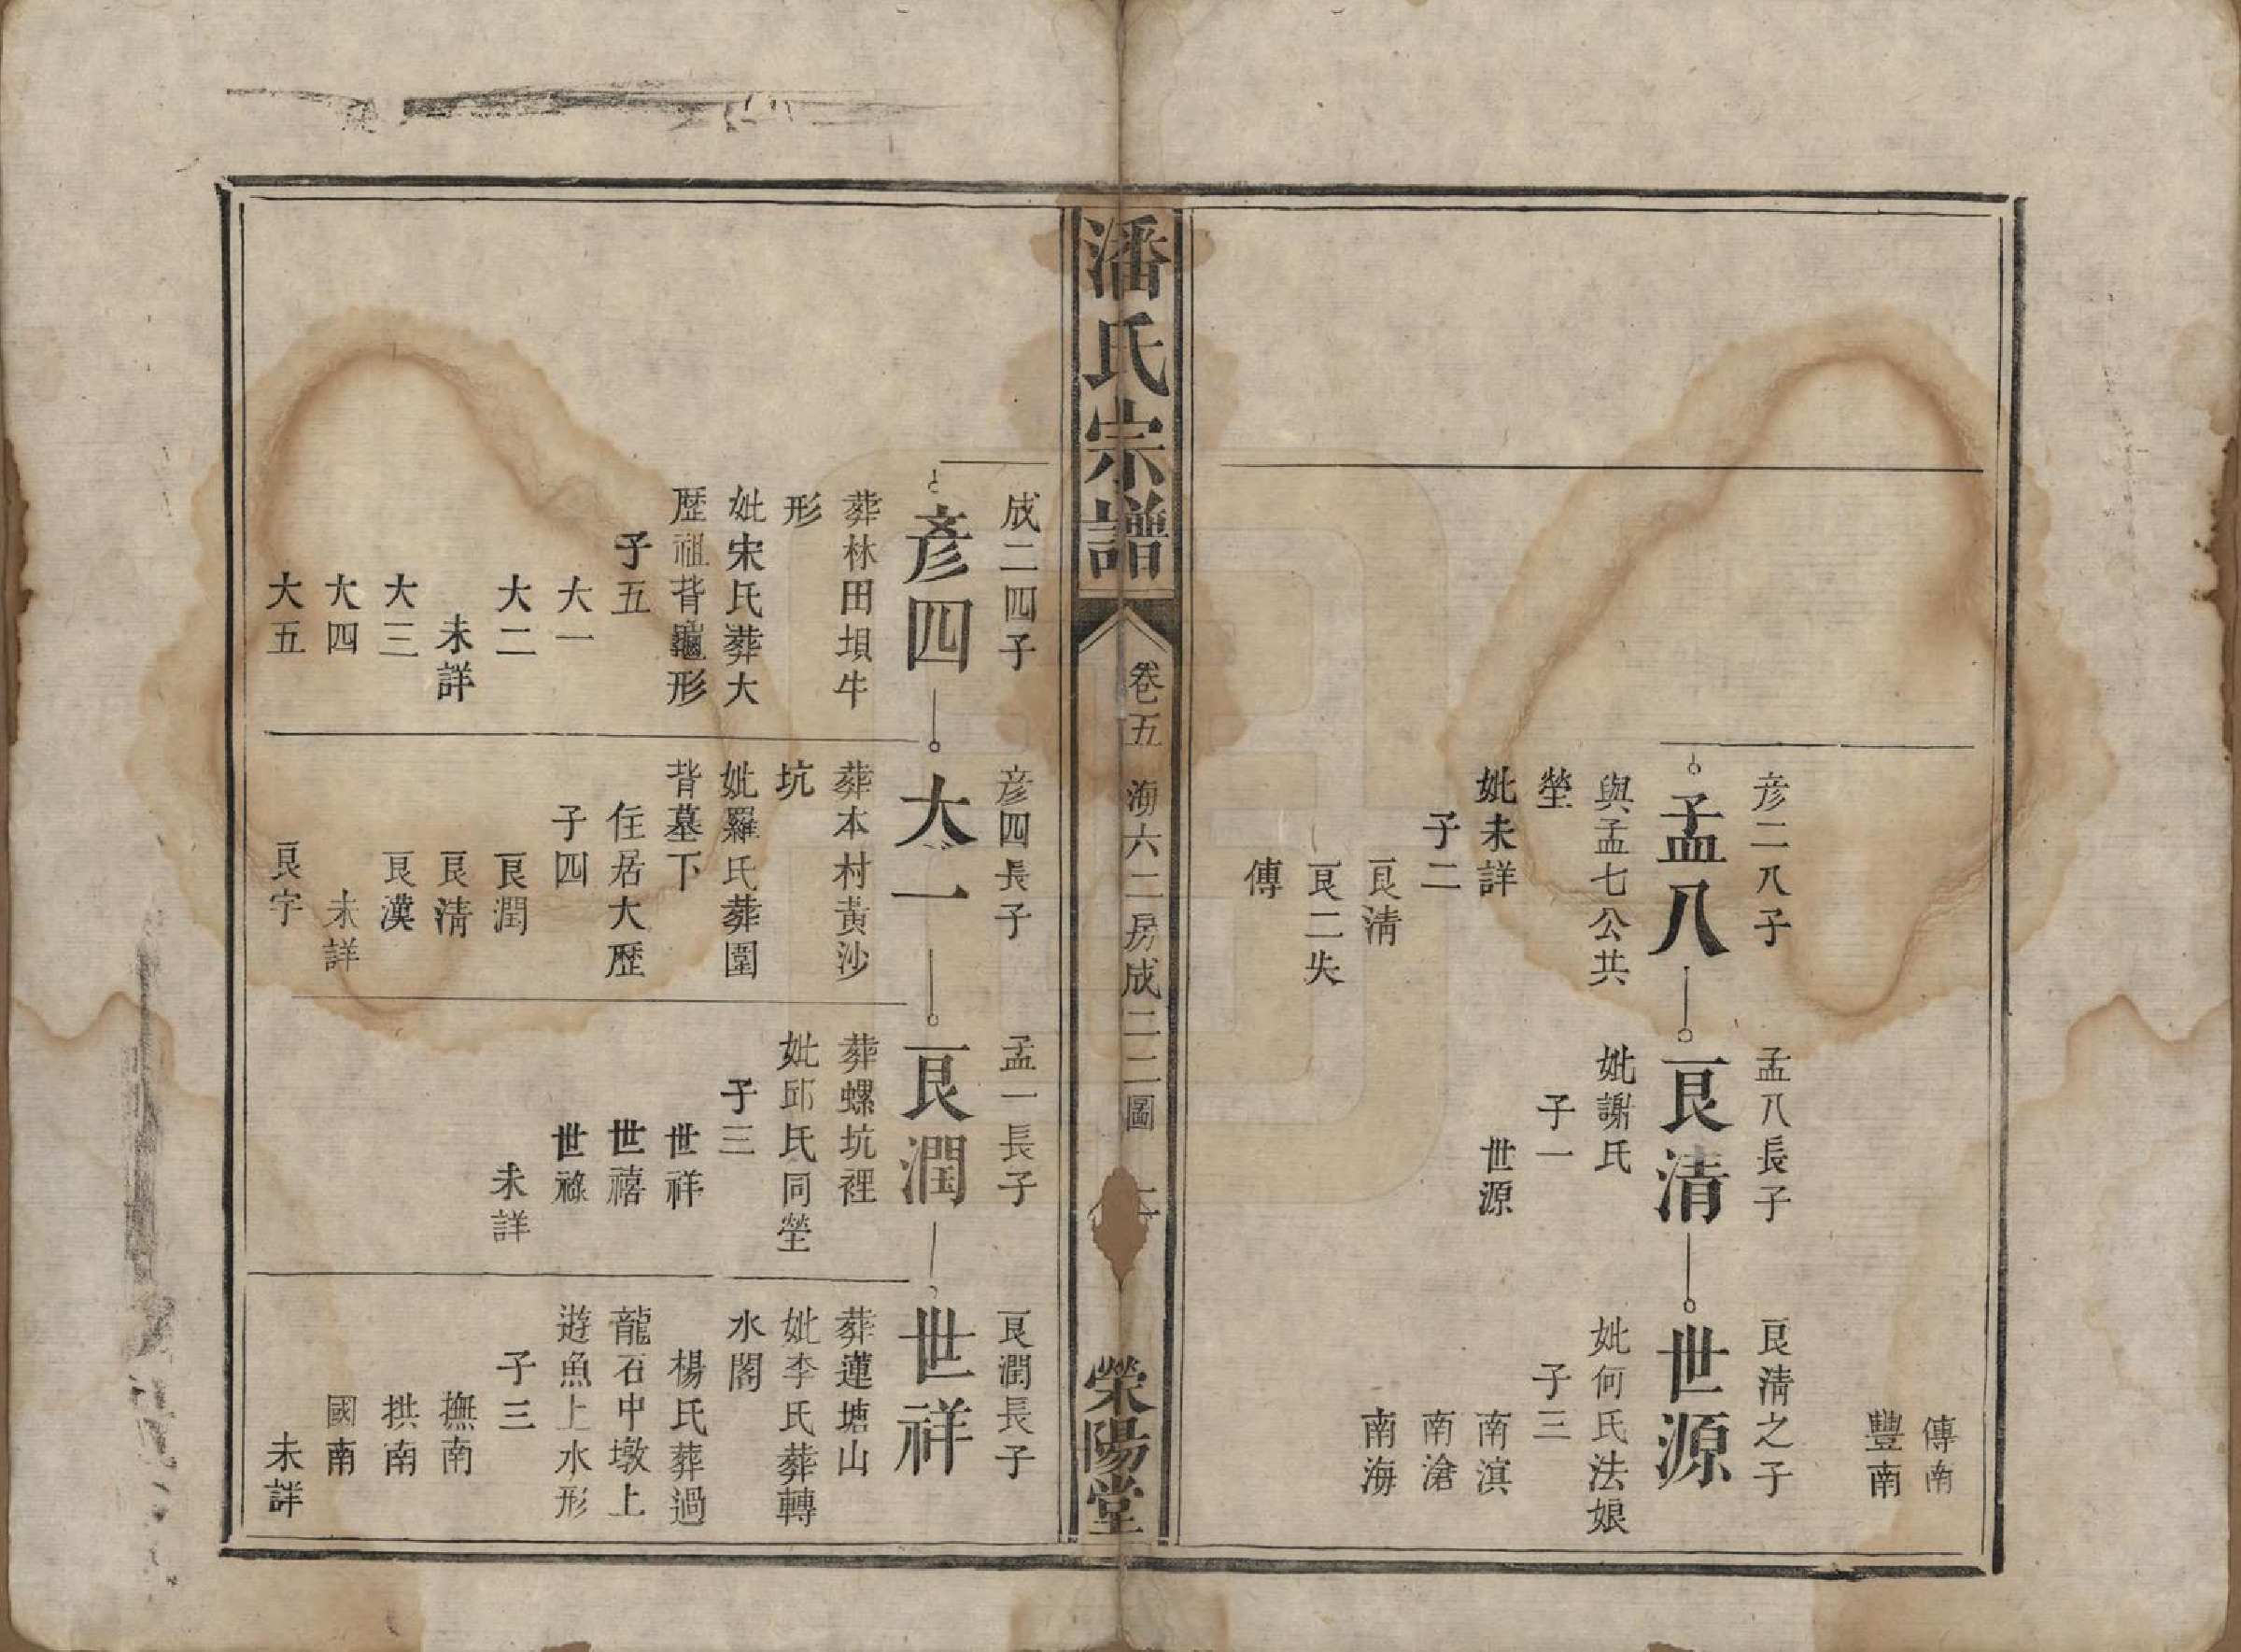 傳南
豐南
彦二八子
孟八
與孟七公共
塋
妣未詳
子二
良清
良二失
傳
孟八長子
良清
妣謝氏
子一
世源
良清之子
世源
妣何氏法娘
子三
南滨
南滄
南海
潘氏宗譜
卷五
海六二房成二二圖
榮陽堂
成二四子
彦四
葬林田垻牛
形
妣宋氏葬大
歷祖背龜形
子五
大一
大二
未詳
大三
大四
大五
彦四長子
大一
葬本村黃沙
坑
妣羅氏葬圍
背墓下
住居大歷
子四
良潤
良清
良漢
未詳
良字
孟一長子
良潤
葬螺坑裡
妣邱氏同塋
子三
世祥
世禧
世祿
未詳
良潤長子
世祥
葬蓮塘山
妣李氏葬轉
水閣
楊氏葬過
龍石中墩上
遊魚上水形
子三
撫南
拱南
國南
未詳